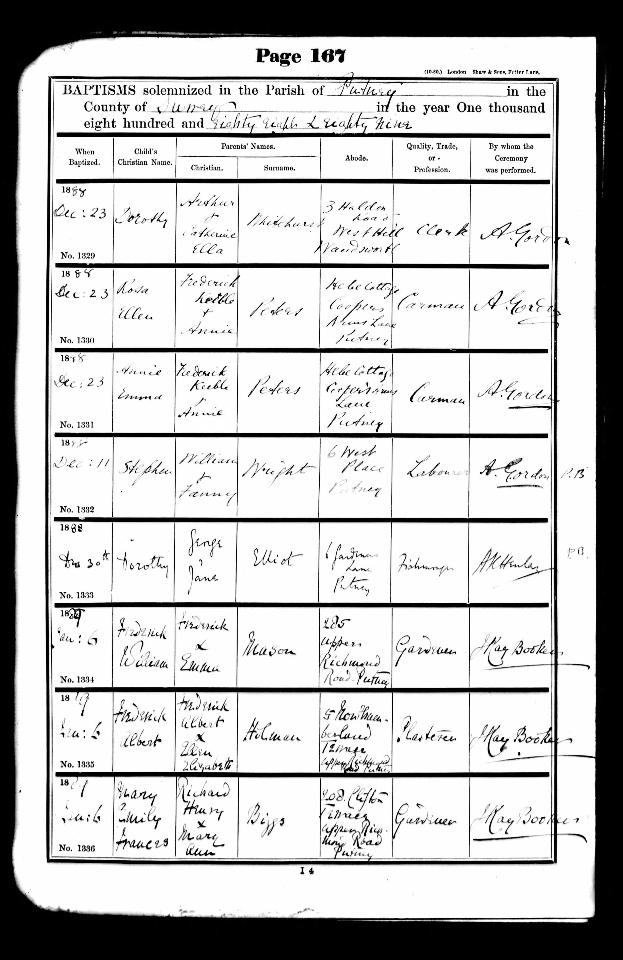 Page 167
(10-80.) London Shaw & Sons, Fetter Lane.
BAPTISMS solemnized in the Parish of Putney in the
County of Surrey in the year One thousand
eight hundred and Eighty Eight & eighty nine
When Baptized.
Child's Christian Name.
Parents' Names.
Christian.
Surname.
Abode.
Quality, Trade, or Profession.
By whom the Ceremony was performed.
1888
Dec: 23
Dorothy
Arthur
+
Catherine
Ella
Whitehurst
3 Haldon
Road
West Hill
Wandsworth
Clerk
A. Gordon
No. 1329
1888
Dec: 23
Rosa
Ellen
Frederick
Keeble
+
Annie
Peters
Hebe Cottage
Coopers
Arms Lane
Putney
Carman
A. Gordon
No. 1330
1888
Dec: 23
Annie
Emma
Frederick
Keeble
+
Annie
Peters
Hebe Cottage
Cooper's Arms
Lane
Putney
Carman
A. Gordon
No. 1331
1888
Dec: 11
Stephen
William
+
Fanny
Wright
6 West
Place
Putney
Labourer
A. Gordon
P.B
No. 1332
1888
Dec 30th
Dorothy
George
+
Jane
Elliot
6 Gardeners
Lane
Putney
Fishmonger
A K Henlay
P.B.
No. 1333
1889
Jan: 6
Frederick
William
Frederick
&
Emma
Mason
285
Upper
Richmond
Road. Putney
Gardener
J Kay Booker
No. 1334
1889
Jan: 6
Frederick
Albert
Frederick
Albert
&
Ellen
Elizabeth
Holman
5 Northum-
berland
Terrace
Upper Richmond
Road Putney
Plasterer
J Kay Booker
No. 1335
1889
Jan 6
Mary
Emily
Frances
Richard
Henry
&
Mary
Ann
Biggs
208. Clifton
Terrace
Upper Rich-
mond Road
Putney
Gardener
J Kay Booker
No. 1336
I 4